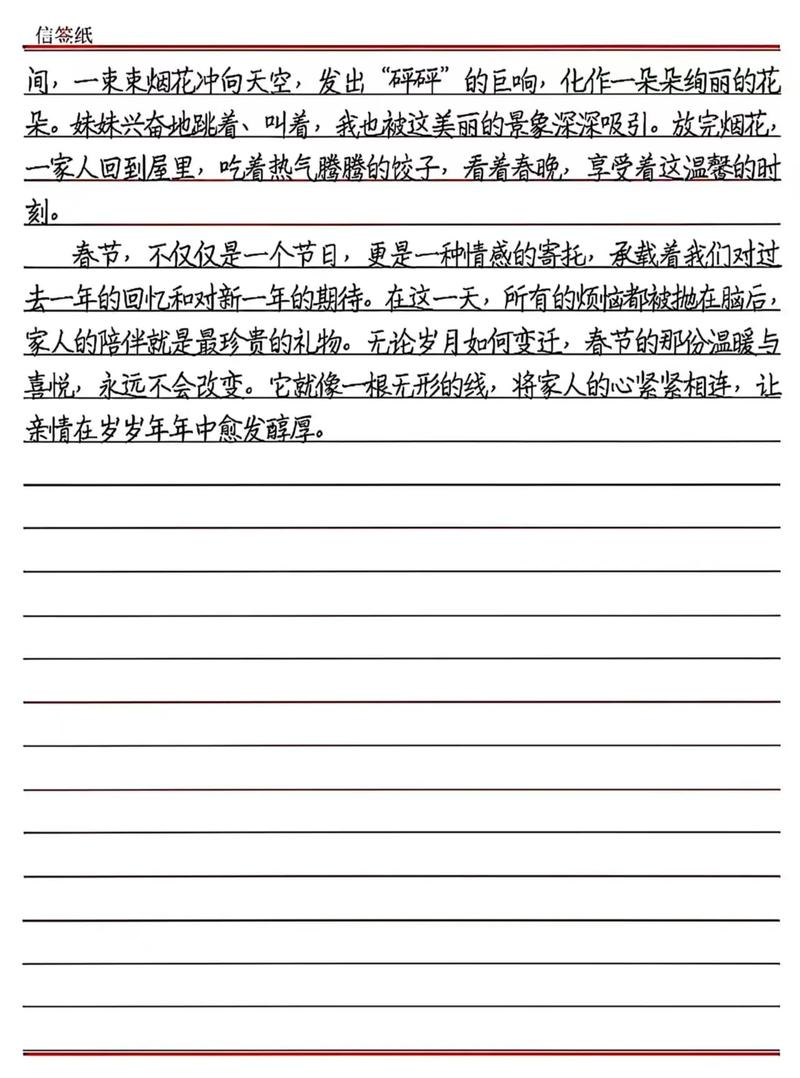 信签纸
间，一束束烟花冲向天空，发出“砰砰”的巨响，化作一朵朵绚丽的花
朵。妹妹兴奋地跳着、叫着，我也被这美丽的景象深深吸引。放完烟花，
一家人回到屋里，吃着热气腾腾的饺子，看着春晚，享受着这温馨的时
刻。
春节，不仅仅是一个节日，更是一种情感的寄托，承载着我们对过
去一年的回忆和对新一年的期待。在这一天，所有的烦恼都被抛在脑后，
家人的陪伴就是最珍贵的礼物。无论岁月如何变迁，春节的那份温暖与
喜悦，永远不会改变。它就像一根无形的线，将家人的心紧紧相连，让
亲情在岁岁年年中愈发醇厚。